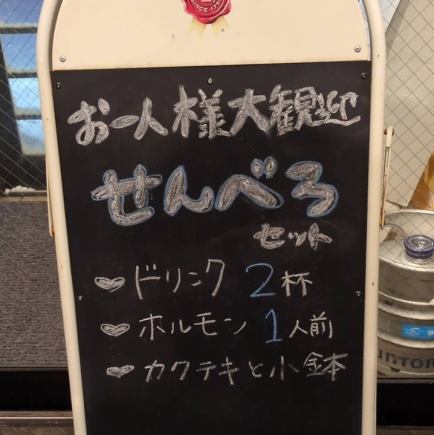 SINCE 17
お一人様大観迎
せんべろ
セット
♥ ドリンク 2杯
♥ ホルモン 1人前
♥ カクテキと小鉢
SUNTOR